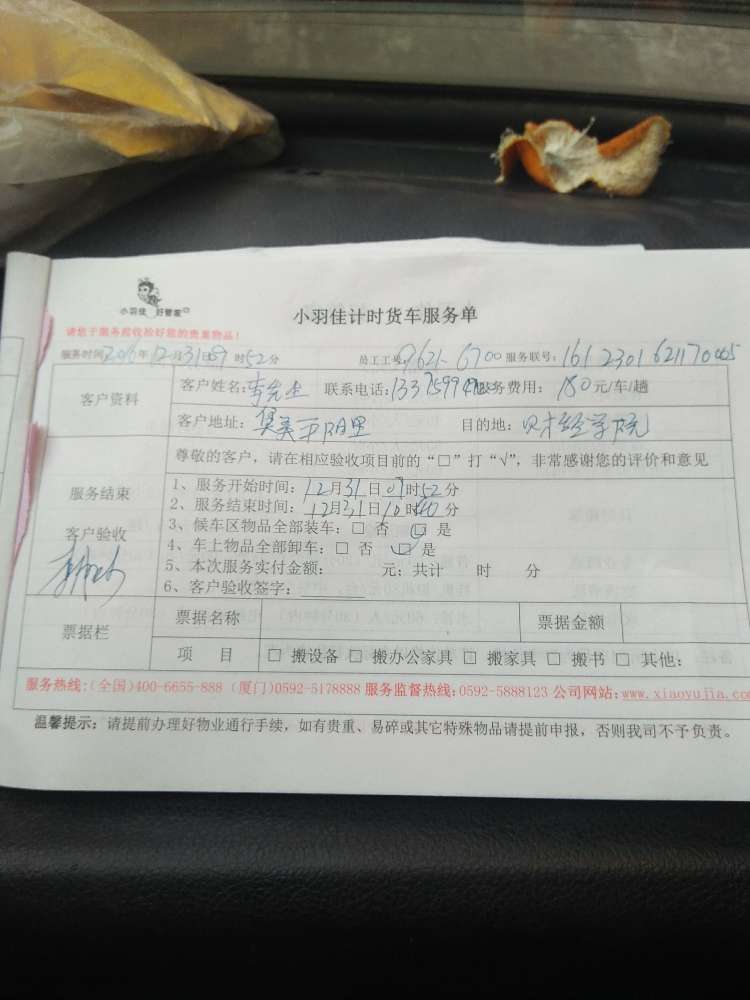 小羽佳 好管家
小羽佳计时货车服务单
请您于服务前收检好您的贵重物品!
服务时间2016年12月31日09时52分 员工工号: 9621-6700 服务联号: 161230162117
客户资料 客户姓名:李先生 联系电话: 服务费用:180元/车/趟
客户地址:集美 目的地:财经学院
尊敬的客户，请在相应验收项目前的“□”打“√”，非常感谢您的评价和意见
服务结束
客户验收
1、服务开始时间:12月31日09时52分
2、服务结束时间:12月31日10时40分
3、候车区物品全部装车:□ 否 □ 是
4、车上物品全部卸车:□ 否 □ 是
5、本次服务实付金额: 元;共计 时 分
6、客户验收签字:
票据栏 票据名称 票据金额
项 目 □ 搬设备 □ 搬办公家具 □ 搬家具 □ 搬书 □ 其他:
服务热线:(全国)400-6655-888 (厦门)0592-5178888 服务监督热线:0592-5888123 公司网站:www.xiaoyujia.com
温馨提示: 请提前办理好物业通行手续，如有贵重、易碎或其它特殊物品请提前申报，否则我司不予负责。